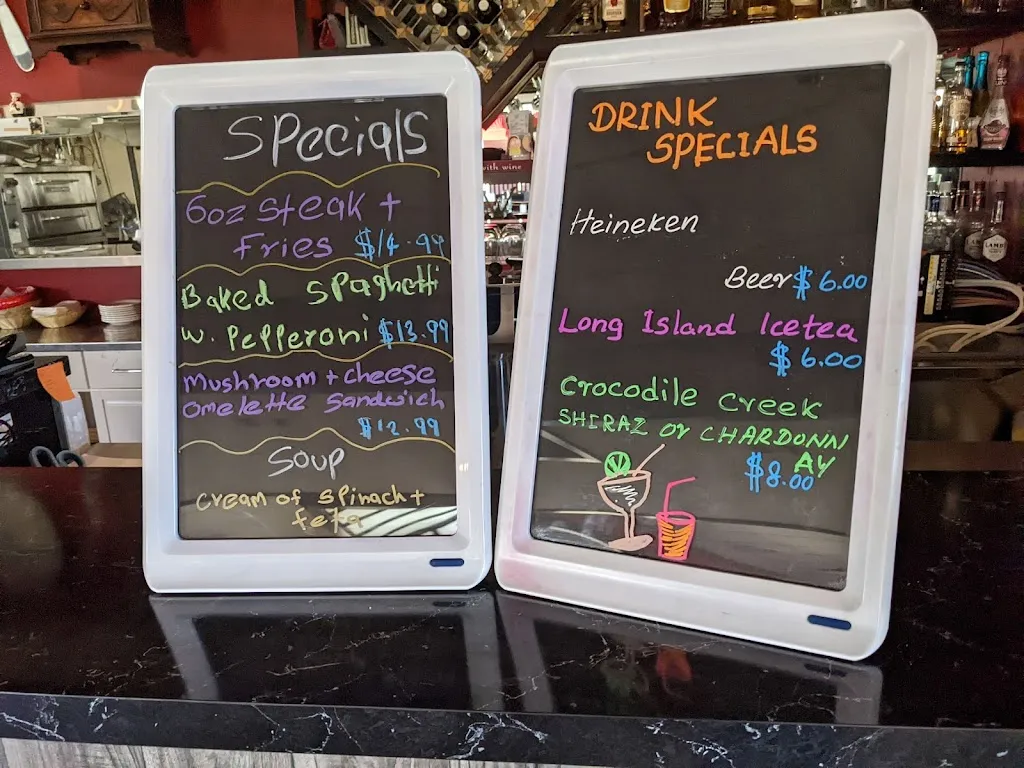 Specials
6oz steak +
Fries $14.99
Baked spaghetti
w. Pepperoni $13.99
Mushroom + cheese
omelette sandwich
$12.99
Soup
cream of spinach +
feta
DRINK
SPECIALS
Heineken
Beer $6.00
Long Island Icetea
$6.00
Crocodile creek
SHIRAZ or CHARDONN
AY
$8.00
with wine